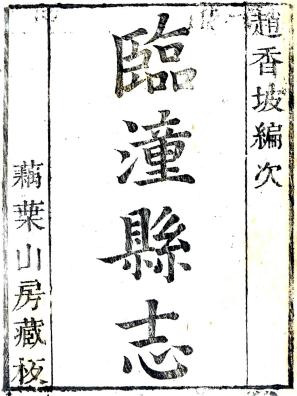 趙香坡編次
臨潼縣志
蕅葉山房藏板